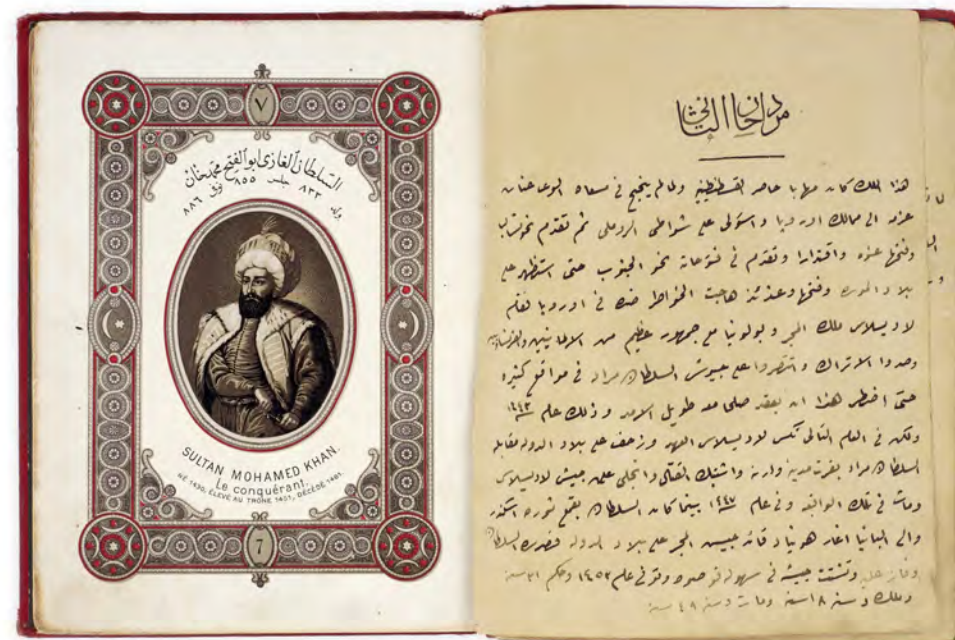 ٧
السلطان الغازى ابو الفتح محمد خان
ولد ٨٣٣ جلس ٨٥٥ توفى ٨٨٦
SULTAN MOHAMED KHAN.
Le conquérant.
NÉ 1430, ÉLEVÉ AU TRÔNE 1451, DÉCÉDÉ 1481.
7
مراد خان الثاني
هذا الملك كان مهابا حاصر القسطنطينية ولما لم ينجح في مسعاه
عزمه الى ممالك اوروبا واستولى على شواطى الروملي ثم تقدم نحو
وفتحها عنوة واقتدارا وتقدم في فتوحاته نحو الجنوب حتى استظهر على
بلاد المورة وفتحها وعندئذ هاجت الخواطر ضده في اوروبا فقام
لاديسلاس ملك المجر وبولونيا مع جمهور عظيم من الالمانيين
وصدوا الاتراك وانتصروا على جيوش السلطان مراد في مواقع كثيرة
حتى اضطر هذا ان يعقد صلحا معه طويل الامد وذلك عام ١٤٤٣
ولكن في العام التالى نكس لاديسلاس العهد وزحف على بلاد الدولة فقابله
السلطان مراد بقرب مدينة وارنة واشتبك القتال وانجلى على جيش لاديسلاس
ومات في تلك الواقعة وفي عام ١٤٤٧ بينما كان السلطان يقمع ثورة اسكندر
والى البانيا اغار هونياد قائد جيش المجر على بلاد الدولة السلطان
وتشتت جيشه في سهولة قوصوه وتوفى عام ١٤٥٢ وحكم ٣١ سنة
وملك وسنه ١٨ سنة ومات وسنه ٤٩ سنة